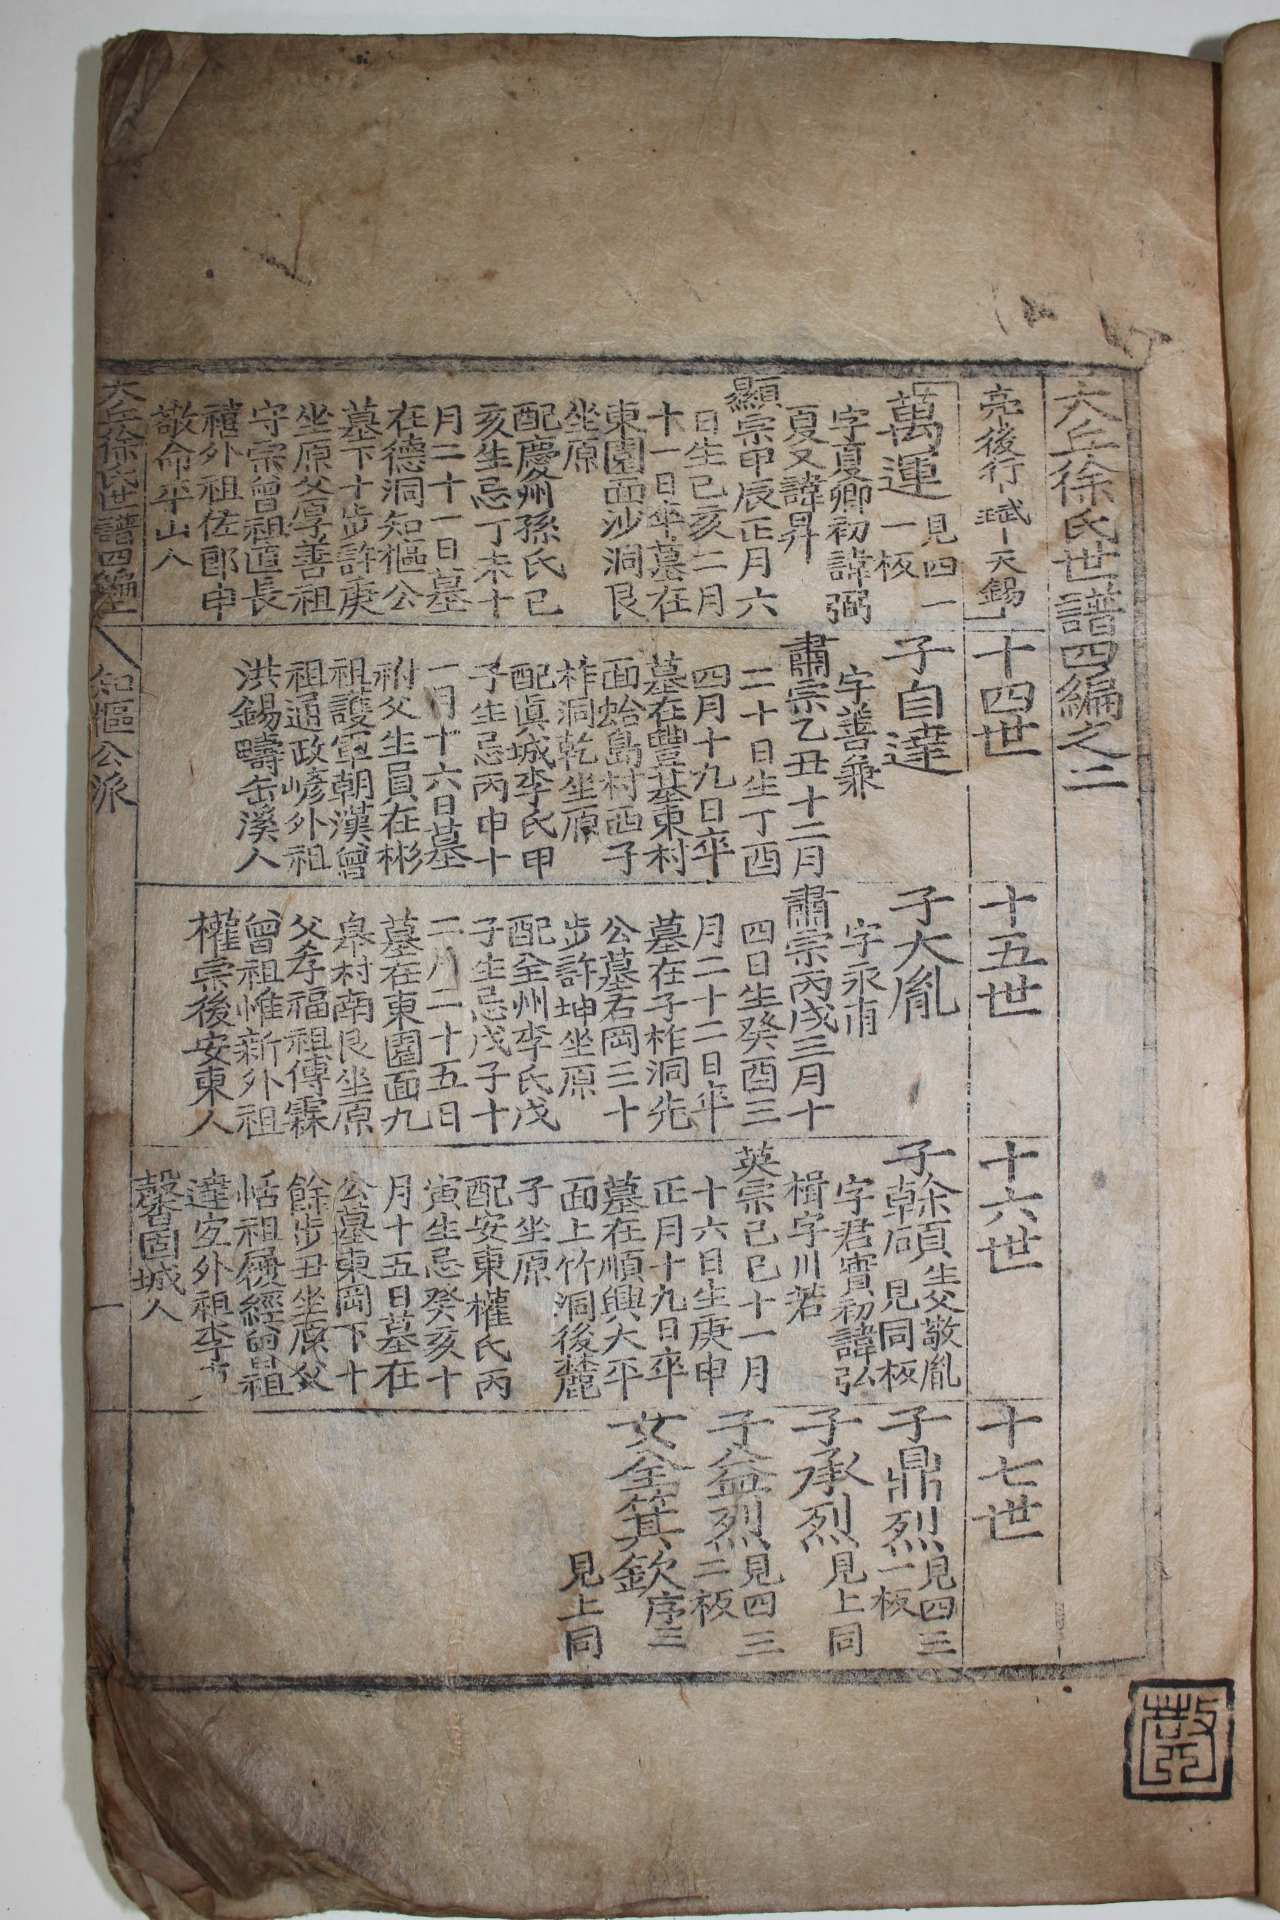 大丘徐氏世譜四編之二
亮後行 天錫
十四世
十五世
十六世
十七世
萬運 見四一
一板
字夏卿初諱弼
夏又諱昇
顯宗甲辰正月六
日生己亥二月
十一日卒墓在
東園面沙洞艮
坐原
配慶州孫氏己
亥生忌丁未十
月二十一日墓
在德洞知樞公
墓下十步許庚
坐原父厚善祖
守宗曾祖直長
禧外祖佐郎申
敬命平山人
子自達
字善兼
肅宗乙丑十二月
二十日生丁酉
四月十九日卒
墓在豐基東村
面蛤島村西子
柞洞乾坐原
配眞城李氏甲
子生忌丙申十
一月十六日墓
祔父生員在彬
祖護軍朝漢曾
祖通政㟽外祖
洪錫疇缶溪人
子大胤
字永甫
肅宗丙戌三月十
四日生癸酉三
月二十二日卒
墓在子柞洞先
公墓右岡三十
步許坤坐原
配全州李氏戊
子生忌戊子十
二月二十五日
墓在東園面九
皐村南艮坐原
父孝福祖傳霖
曾祖惟新外祖
權崇後安東人
子幹碩 生父敬胤
見同板
字君實初諱弘
楫字川若
英宗己巳十一月
十六日生庚申
正月十九日卒
墓在順興大平
面上竹洞後麓
子坐原
配安東權氏丙
寅生忌癸亥十
月十五日墓在
公墓東岡下十
餘步丑坐原父
恬祖履經曾祖
達宏外祖李
馨固城人
子鼎烈 見四三
一板
子承烈 見上同
子益烈 見四三
二板
女金箕欽 序三
見上同
大丘徐氏世譜四編 知樞公派 一